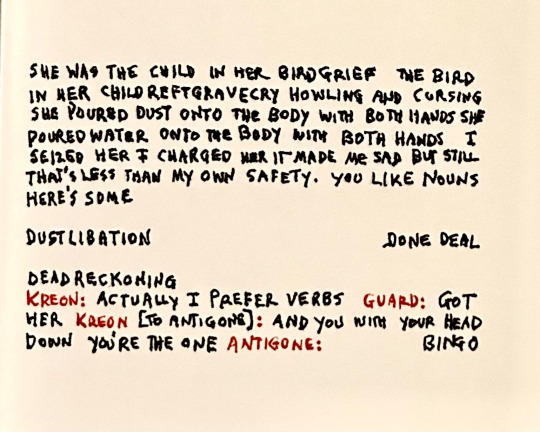 SHE WAS THE CHILD IN HER BIRDGRIEF THE BIRD
IN HER CHILDREFTGRAVECRY HOWLING AND CURSING
SHE POURED DUST ONTO THE BODY WITH BOTH HANDS SHE
POURED WATER ONTO THE BODY WITH BOTH HANDS I
SEIZED HER I CHARGED HER IT MADE ME SAD BUT STILL
THAT'S LESS THAN MY OWN SAFETY. YOU LIKE NOUNS
HERE'S SOME
DUSTLIBATION DONE DEAL
DEADRECKONING
KREON: ACTUALLY I PREFER VERBS GUARD: GOT
HER KREON [TO ANTIGONE]: AND YOU WITH YOUR HEAD
DOWN YOU'RE THE ONE ANTIGONE: BINGO